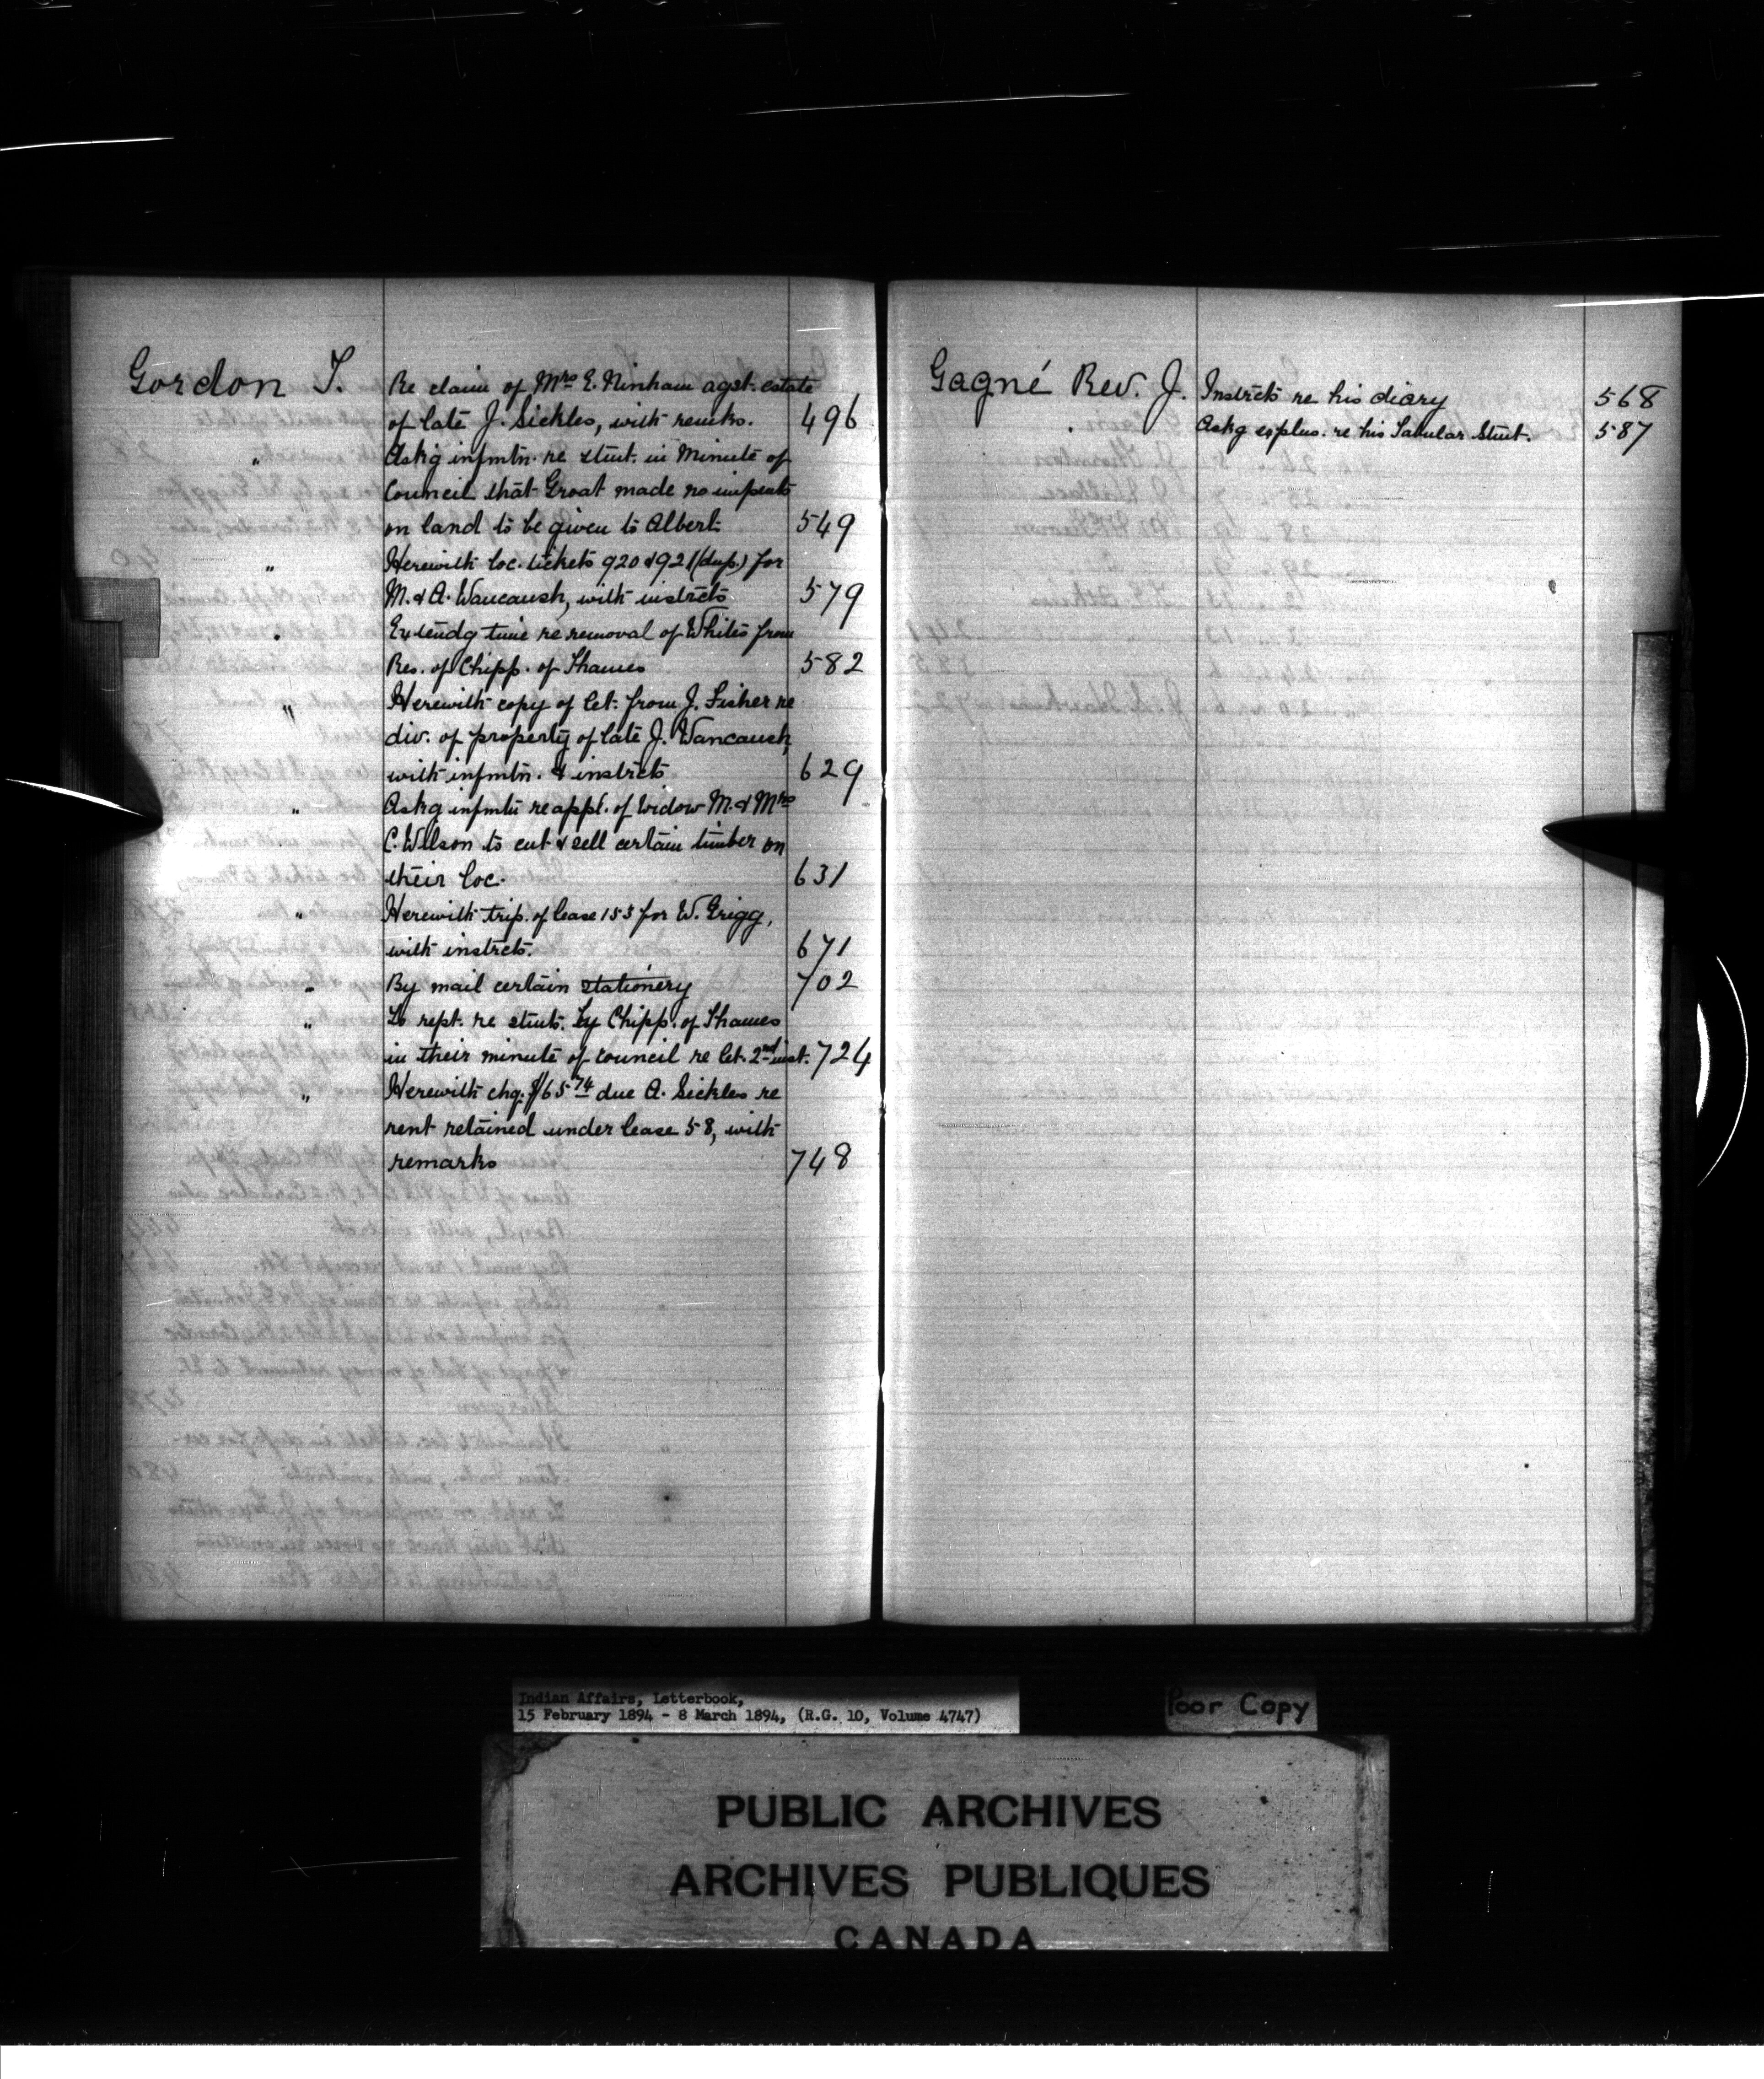 Gordon T.
Re claim of Mrs E. Ninham agst. estate
of late J. Sickles, with remks. 496
" Askg infmtn. re stmt. in Minute of
Council that Groat made no impents
on land to be given to Albert 549
" Herewith loc. tickets 920 & 921 (dup.) for
M. & A. Waucaush, with instrcts 579
" Extendg time re removal of Whites from
Res. of Chipp. of Thames 582
" Herewith copy of let. from J. Fisher re
div. of property of late J. Wancaush,
with infmtn. & instrcts 629
" Askg infmtn re appl. of widow M. & Mrs
C. Wilson to cut & sell certain timber on
their loc. 631
" Herewith trip. of lease 153 for W. Grigg,
with instrcts. 671
" By mail certain stationery 702
" To rept. re stmts. by Chipp. of Thames
in their minute of council re let. 2nd inst. 724
" Herewith chq. $165.74 due A. Sickles re
rent retained under lease 58, with
remarks 748
Gagné Rev. J. Instrcts re his diary 568
" Askg explns. re his Tabular Stmt. 587
Indian Affairs, Letterbook,
15 February 1894 - 8 March 1894, (R.G. 10, Volume 4747)
Poor Copy
PUBLIC ARCHIVES
ARCHIVES PUBLIQUES
CANADA